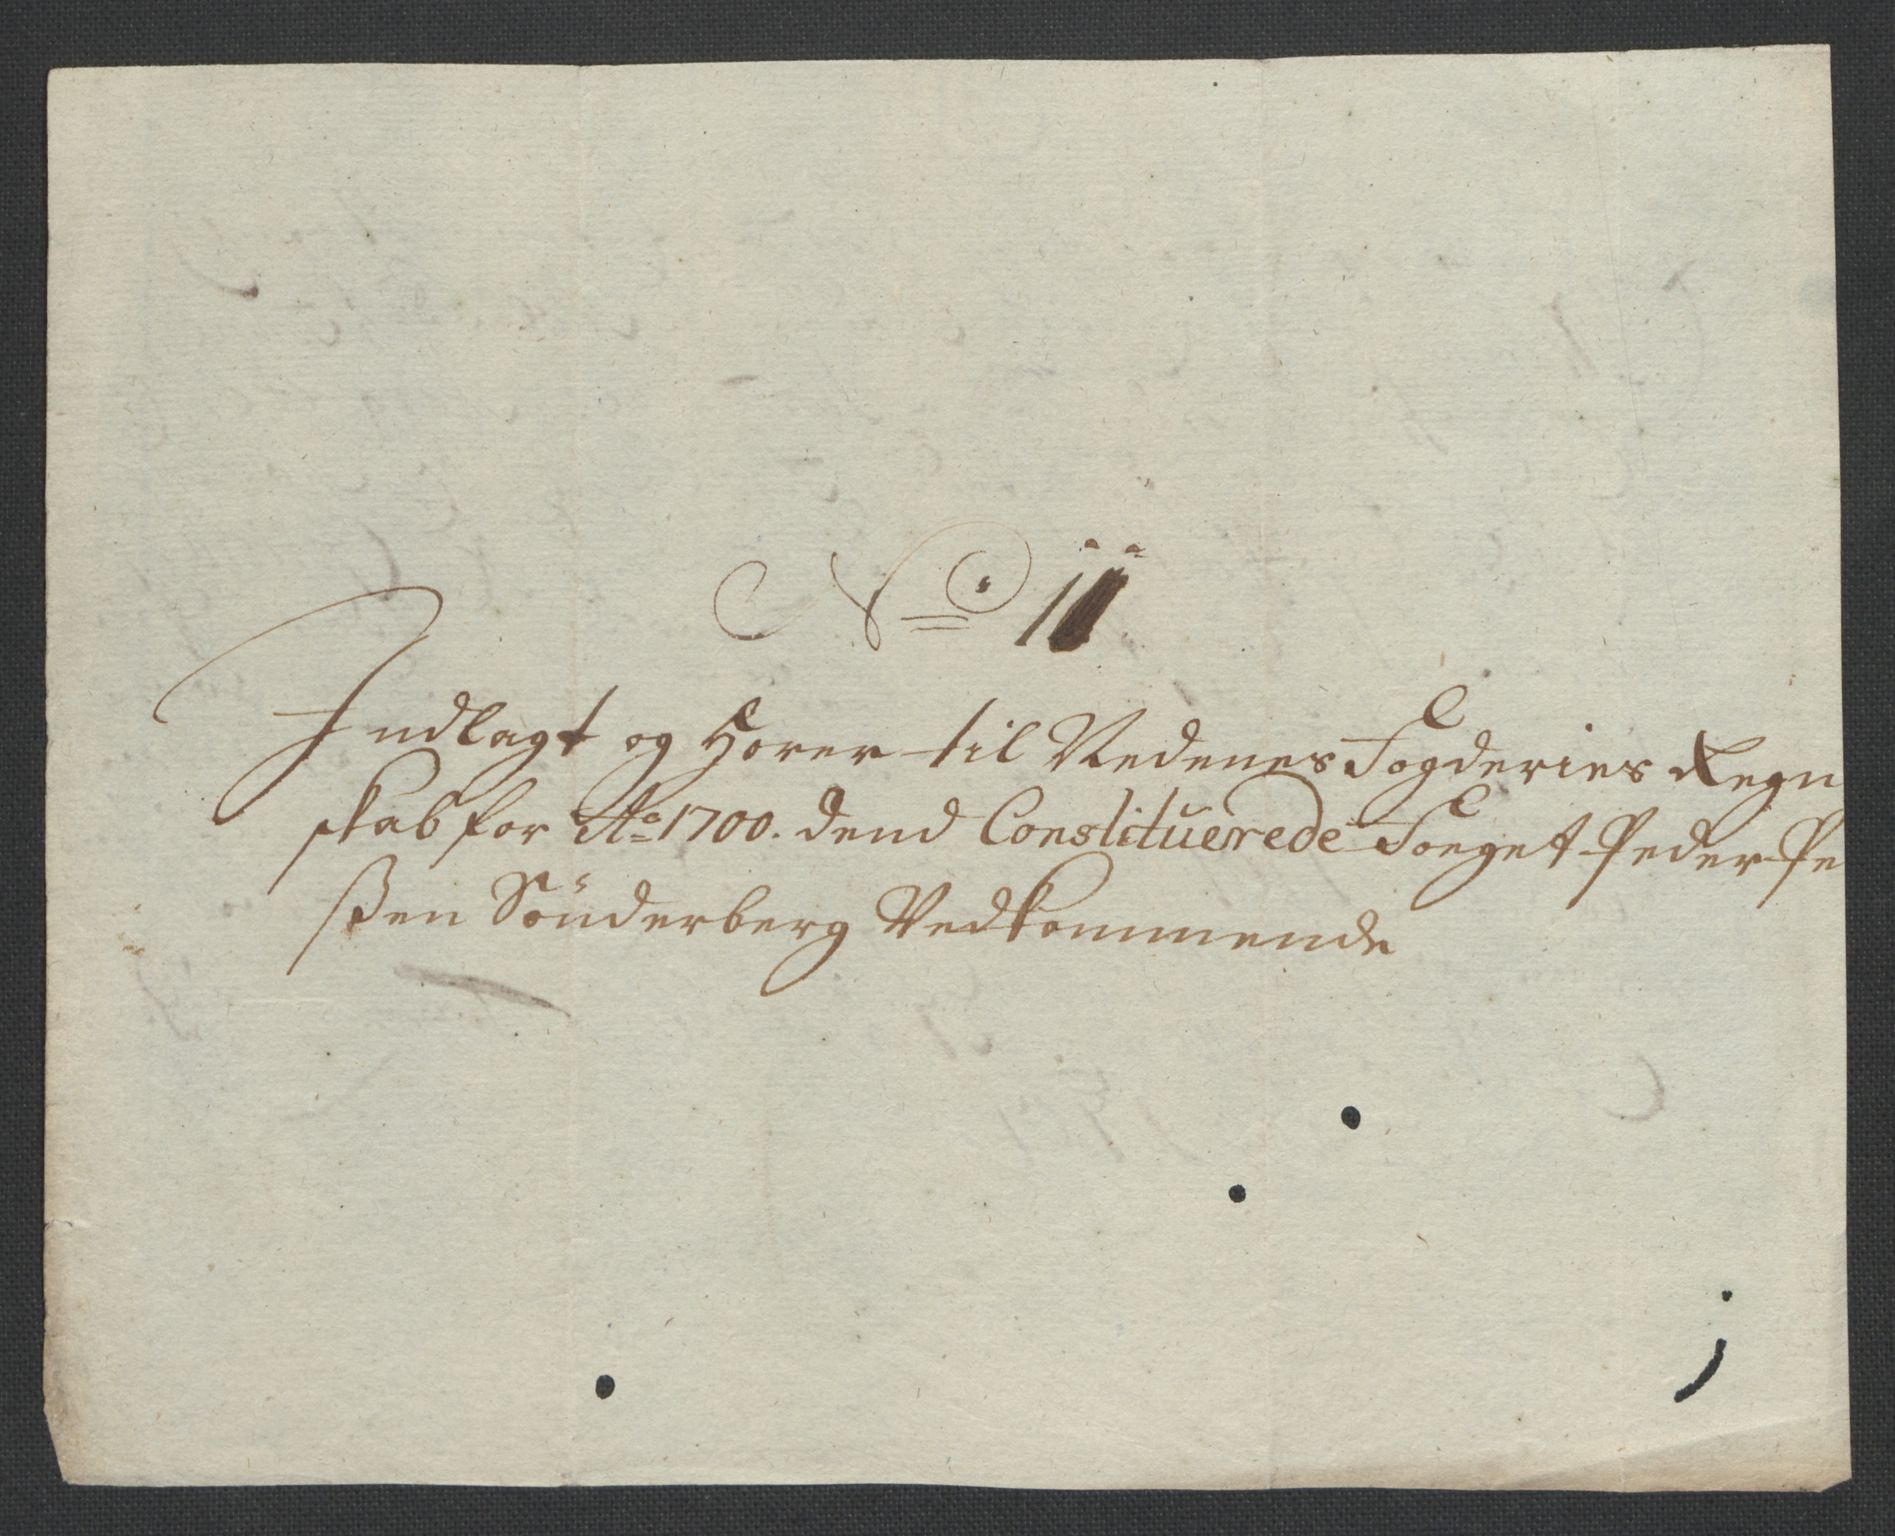 No: 11
Indlagt og Hører til Nedenes Fogderies Regn
skab for Ao 1700. dend Constituerede Foeget Peder Pe
ßen Sönderberg Vedkommende